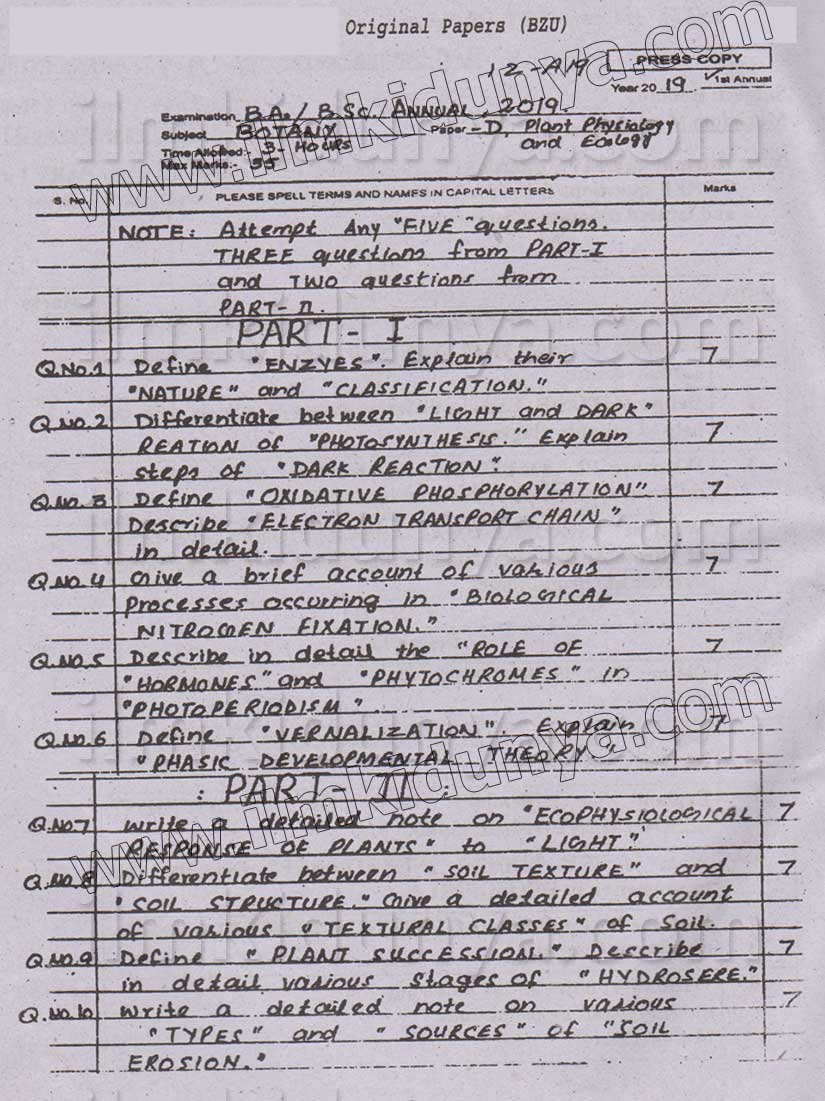 Original Papers (BZU)
12-A19
PRESS COPY
Year 2019 1st Annual
Examination B.A./B.Sc. ANNUAL, 2019.
Subject BOTANY Paper - D, Plant Physiology
Time Allowed:- 3- Hours and Ecology
Max Marks:- 35
S. No. PLEASE SPELL TERMS AND NAMES IN CAPITAL LETTERS Marks
NOTE: Attempt Any "FIVE" questions.
THREE questions from PART-I
and TWO questions from
PART- II.
PART- I
Q.NO.1 Define "ENZYES". Explain their 7
"NATURE" and "CLASSIFICATION."
Q.NO.2 Differentiate between "LIGHT and DARK"
REATION OF "PHOTOSYNTHESIS." Explain 7
steps of "DARK REACTION".
Q.NO.3 Define "OXIDATIVE PHOSPHORYLATION" 7
Describe "ELECTRON TRANSPORT CHAIN"
in detail.
Q.NO.4 Give a brief account of various 7
Processes occurring in "BIOLOGICAL
NITROGEN FIXATION."
Q.NO.5 Describe in detail the "ROLE OF 7
"HORMONES" and "PHYTOCHROMES" in
"PHOTOPERIODISM".
Q.NO.6 Define "VERNALIZATION". Explain 7
"PHASIC DEVELOPMENTAL THEORY"
: PART- II :
Q.NO7 Write a detailed note on "ECOPHYSIOLOGICAL 7
RESPONSE OF PLANTS" to "LIGHT".
Q.NO.8 Differentiate between "SOIL TEXTURE" and 7
"SOIL STRUCTURE." Give a detailed account
of various "TEXTURAL CLASSES" of Soil.
Q.NO.9 Define "PLANT SUCCESSION." Describe 7
in detail various stages of "HYDROSERE."
Q.NO.10 Write a detailed note on various 7
"TYPES" and "SOURCES" of "SOIL
EROSION."
www.ilmkidunya.com
www.ilmkidunya.com
ilmkidunya.com
ilmkidunya.com
ilmkidunya.com
ilmkidunya.com
ilmkidunya.com
ilmkidunya.com